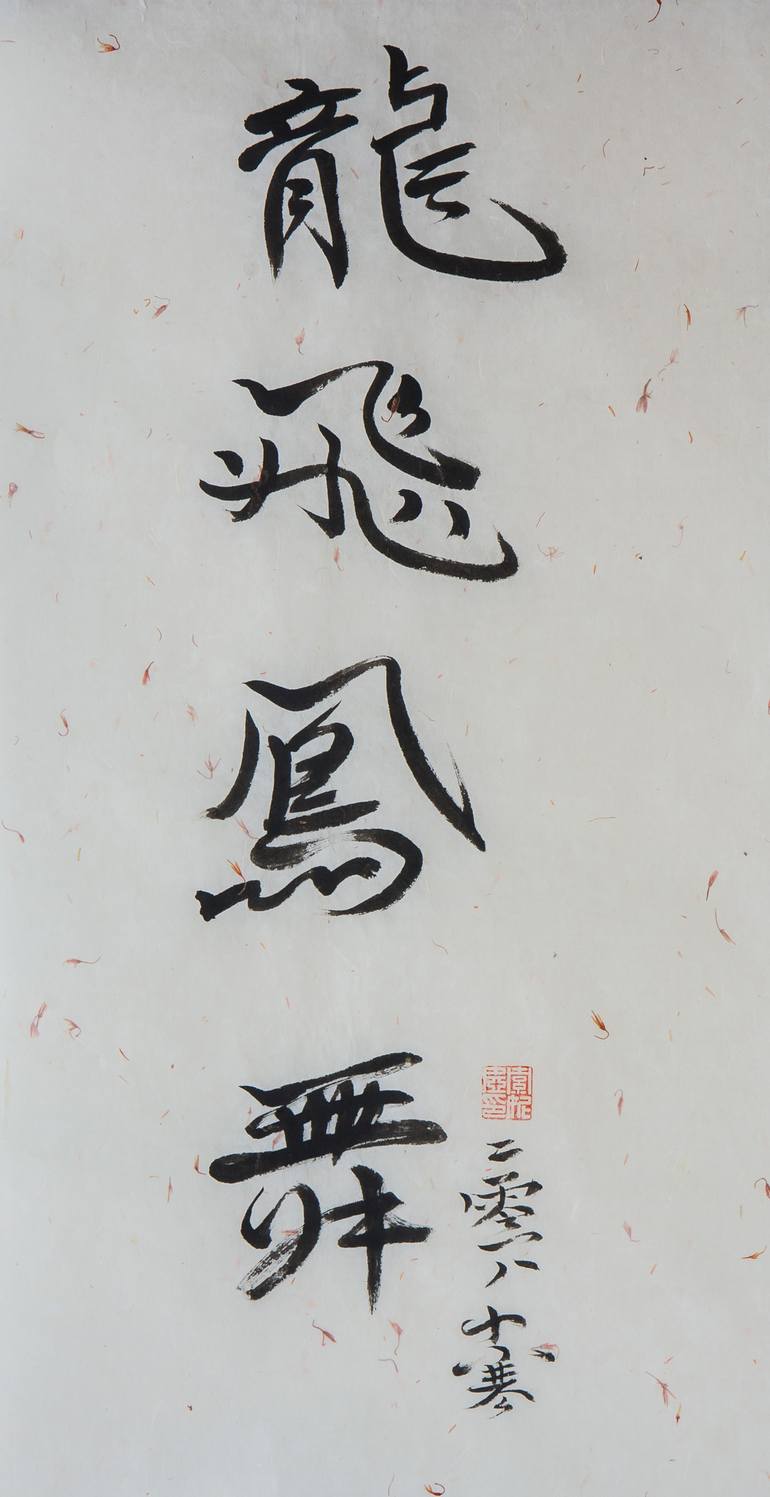 龍飛鳳舞
二零一八